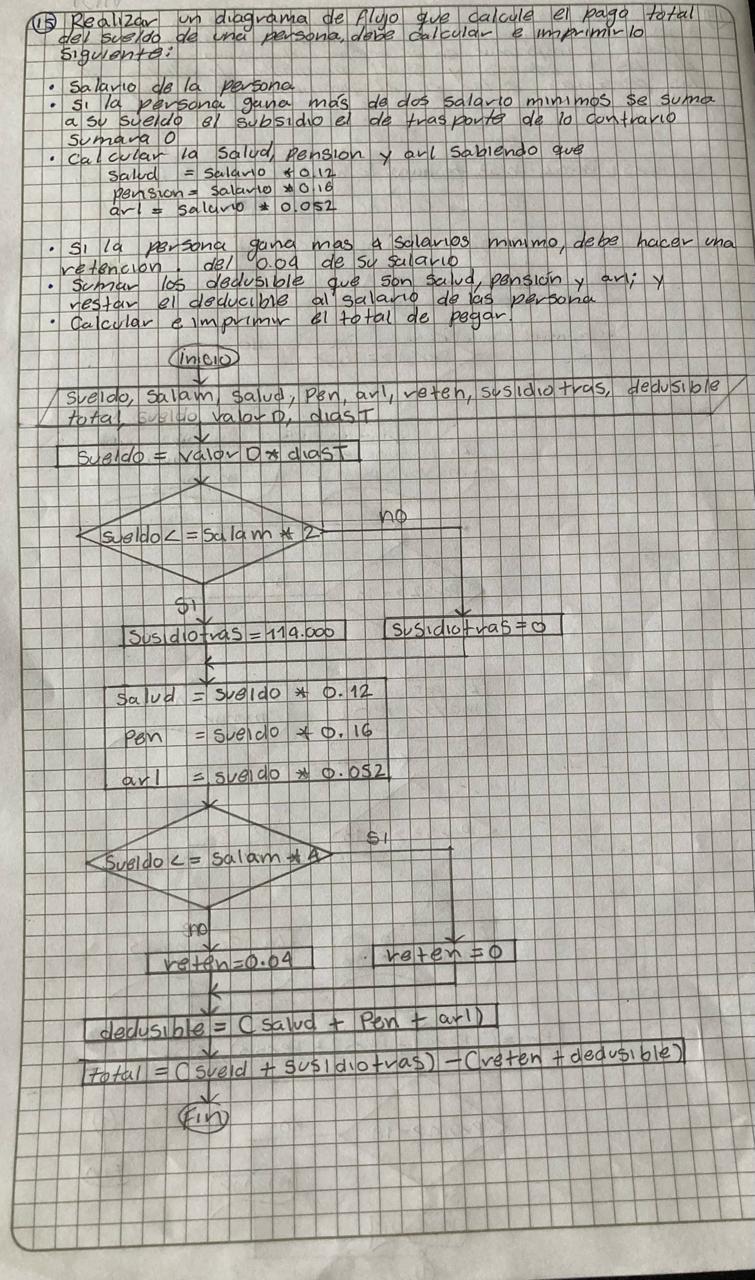 15 Realizar un diagrama de flujo que calcule el pago total
del sueldo de una persona, debe calcular e imprimir lo
siguiente:
• Salario de la persona
• si la persona gana más de dos salario minimos se suma
a su sueldo el subsidio el de trasporte de lo contrario
sumara 0
• Calcular la Salud, pension y arl sabiendo que
salud = salario * 0.12
pension = salario * 0.16
arl = salario * 0.052
• Si la persona gana mas 4 salarios minimo, debe hacer una
retención. del 0.04 de su salario
• Sumar los dedusible que son salud, pensión y arl; y
restar el deducible al salario de las persona
• Calcular e imprimir el total de pegar.
inicio
sueldo, salam, salud, pen, arl, reten, susidiotras, dedusible
total, sueldo, valorD, diasT
sueldo = valor D * diasT
sueldo <= salam * 2
no
si
susidiotras = 114.000
susidiotras = 0
salud = sueldo * 0.12
pen = sueldo * 0.16
arl = sueldo * 0.052
sueldo <= salam * 4
si
no
reten = 0.04
reten = 0
dedusible = (salud + pen + arl)
total = (sueld + susidiotras) - (reten + dedusible)
Fin